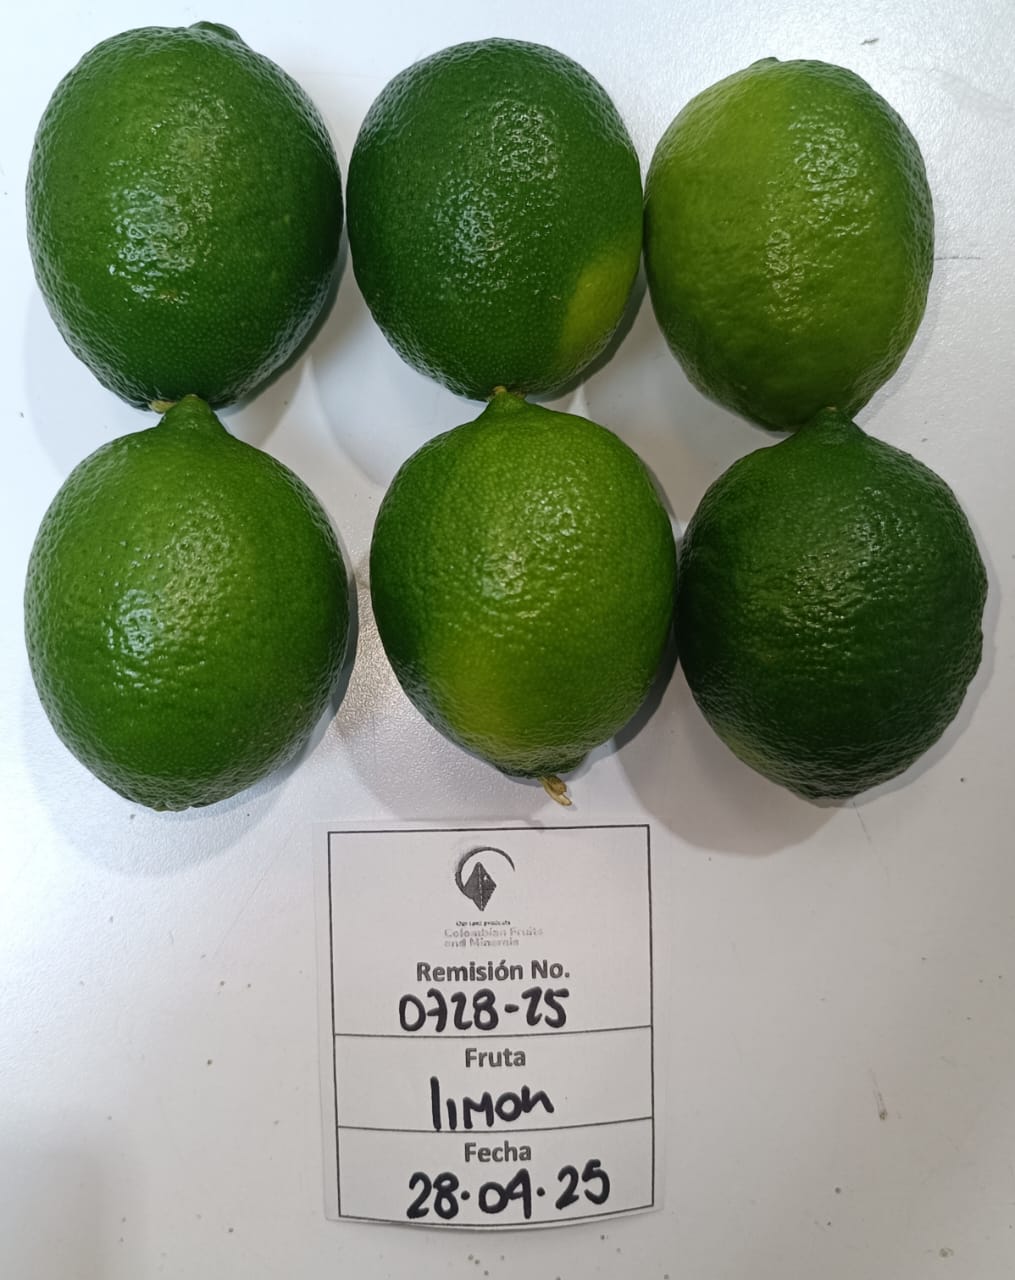 Our Land products
Colombian Fruits
and Minerals
Remisión No.
0728-25
Fruta
limon
Fecha
28.04.25